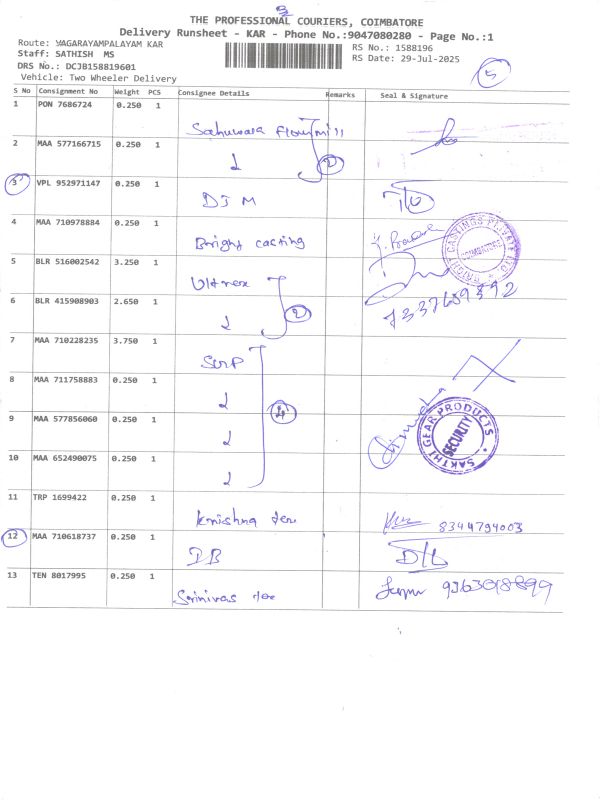 THE PROFESSIONAL COURIERS, COIMBATORE
Delivery Runsheet - KAR - Phone No.:9047080280 - Page No.:1
Route: YAGARAYAMPALAYAM KAR RS No.: 1588196
Staff: SATHISH MS RS Date: 29-Jul-2025
DRS No.: DCJB158819601
Vehicle: Two Wheeler Delivery
5
S No Consignment No Weight PCS Consignee Details Remarks Seal & Signature
1 PON 7686724 0.250 1 Flour mill
2 MAA 577166715 0.250 1 2
3 VPL 952971147 0.250 1 DJM
4 MAA 710978884 0.250 1 Bright casting
BRIGHT CASTINGS PRIVATE LTD COIMBATORE
5 BLR 516002542 3.250 1 Ultrex
6 BLR 415908903 2.650 1 2 7337689392
7 MAA 710228235 3.750 1
8 MAA 711758883 0.250 1 4
9 MAA 577856060 0.250 1
SAKTHI GEAR PRODUCTS SECURITY
10 MAA 652490075 0.250 1
11 TRP 1699422 0.250 1 Krishna 8344794003
12 MAA 710618737 0.250 1 D/L
13 TEN 8017995 0.250 1 Srinivas